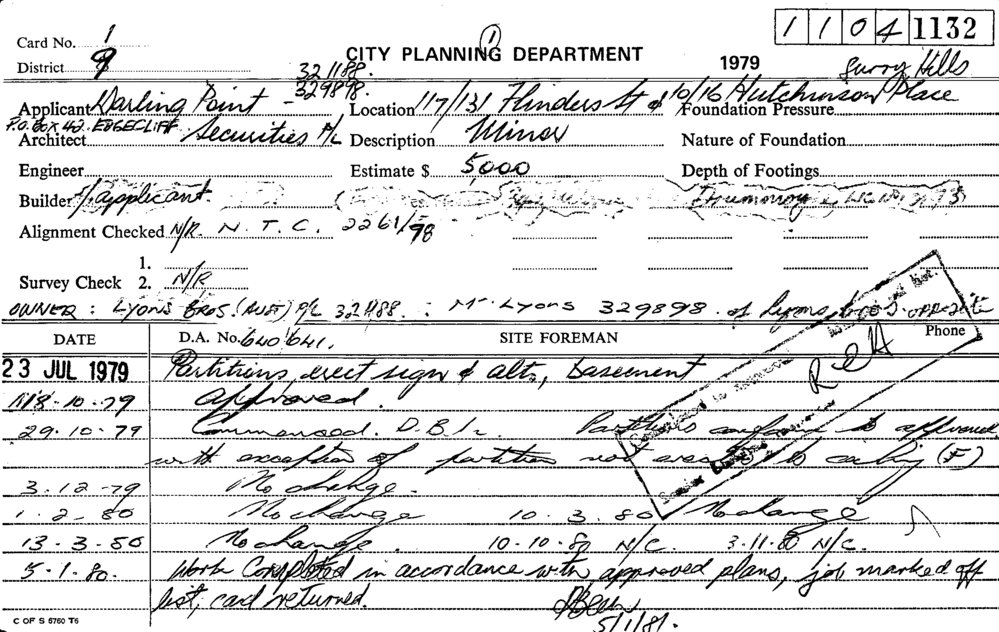 Card No. 1
1 1 0 4 1132
CITY PLANNING DEPARTMENT
1
1979
District 9
321188.
329898.
Surry Hills
Applicant Darling Point
Location 117/131 Flinders St & 10/16 Hutchinson Place
Foundation Pressure
P.O. Box 42. EDGECLIFF
Architect Securities P/L
Description Minor
Nature of Foundation
Engineer
Estimate $ 5,000
Depth of Footings
Builder applicant.
Alignment Checked N/R. N.T.C. 2261/98
1.
Survey Check 2. N/R
OWNER: LYONS BROS. (AUST) P/L 321188. : Mr LYONS 329898. of Lyons bros. opposite
DATE
D.A. No. 640641.
SITE FOREMAN
Phone
R
23 JUL 1979 Partitions, erect sign & alts, basement
18-10-79 Approved.
29.10.79 Commenced. D.B.I. Partitions conform to approved
with exception of partition not to ceiling (F)
3.12-79 No change.
1-2-80 No change 10.3.80 No change
13-3-80 No change. 10-10-80 N/C. 3-11-80 N/C.
5-1-80. Work Completed in accordance with approved plans, job marked off
list, card returned.
5/1/81.
C OF S 6760 T6